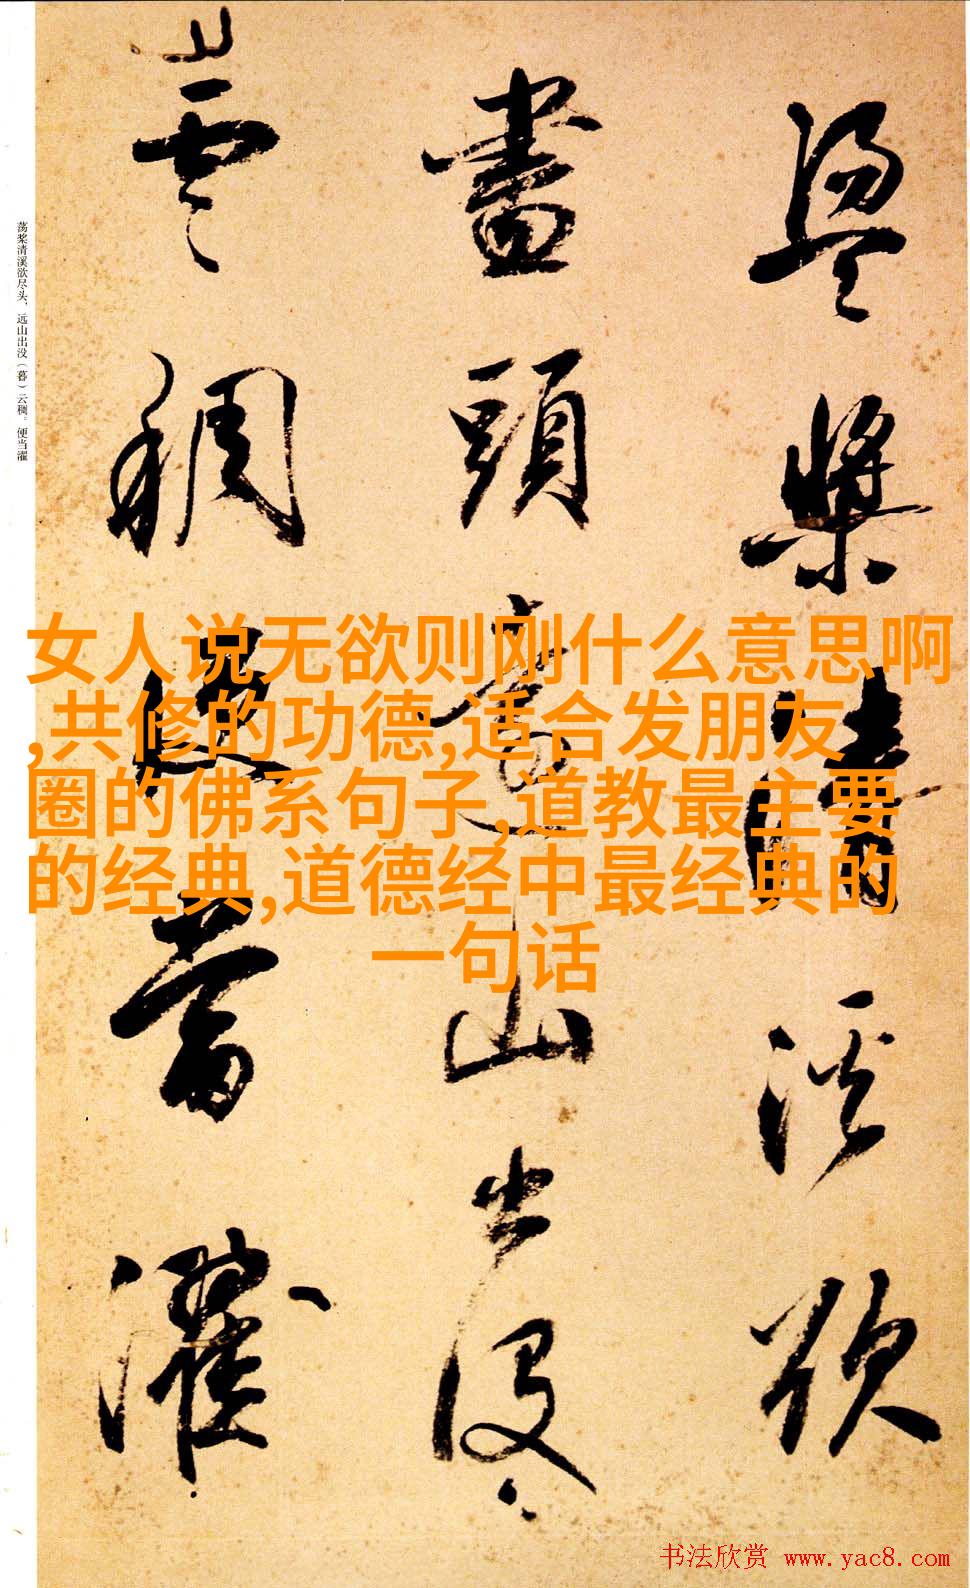 盪槳清溪欲
盡頭遠山出没
雲稠便當濯
荡桨清溪欲尽头，远山出没（暮）云稠。便当濯
女人说无欲则刚什么意思啊
,共修的功德,适合发朋友
圈的佛系句子,道教最主要
的经典,道德经中最经典的
一句话
书法欣赏 www.yac8.com